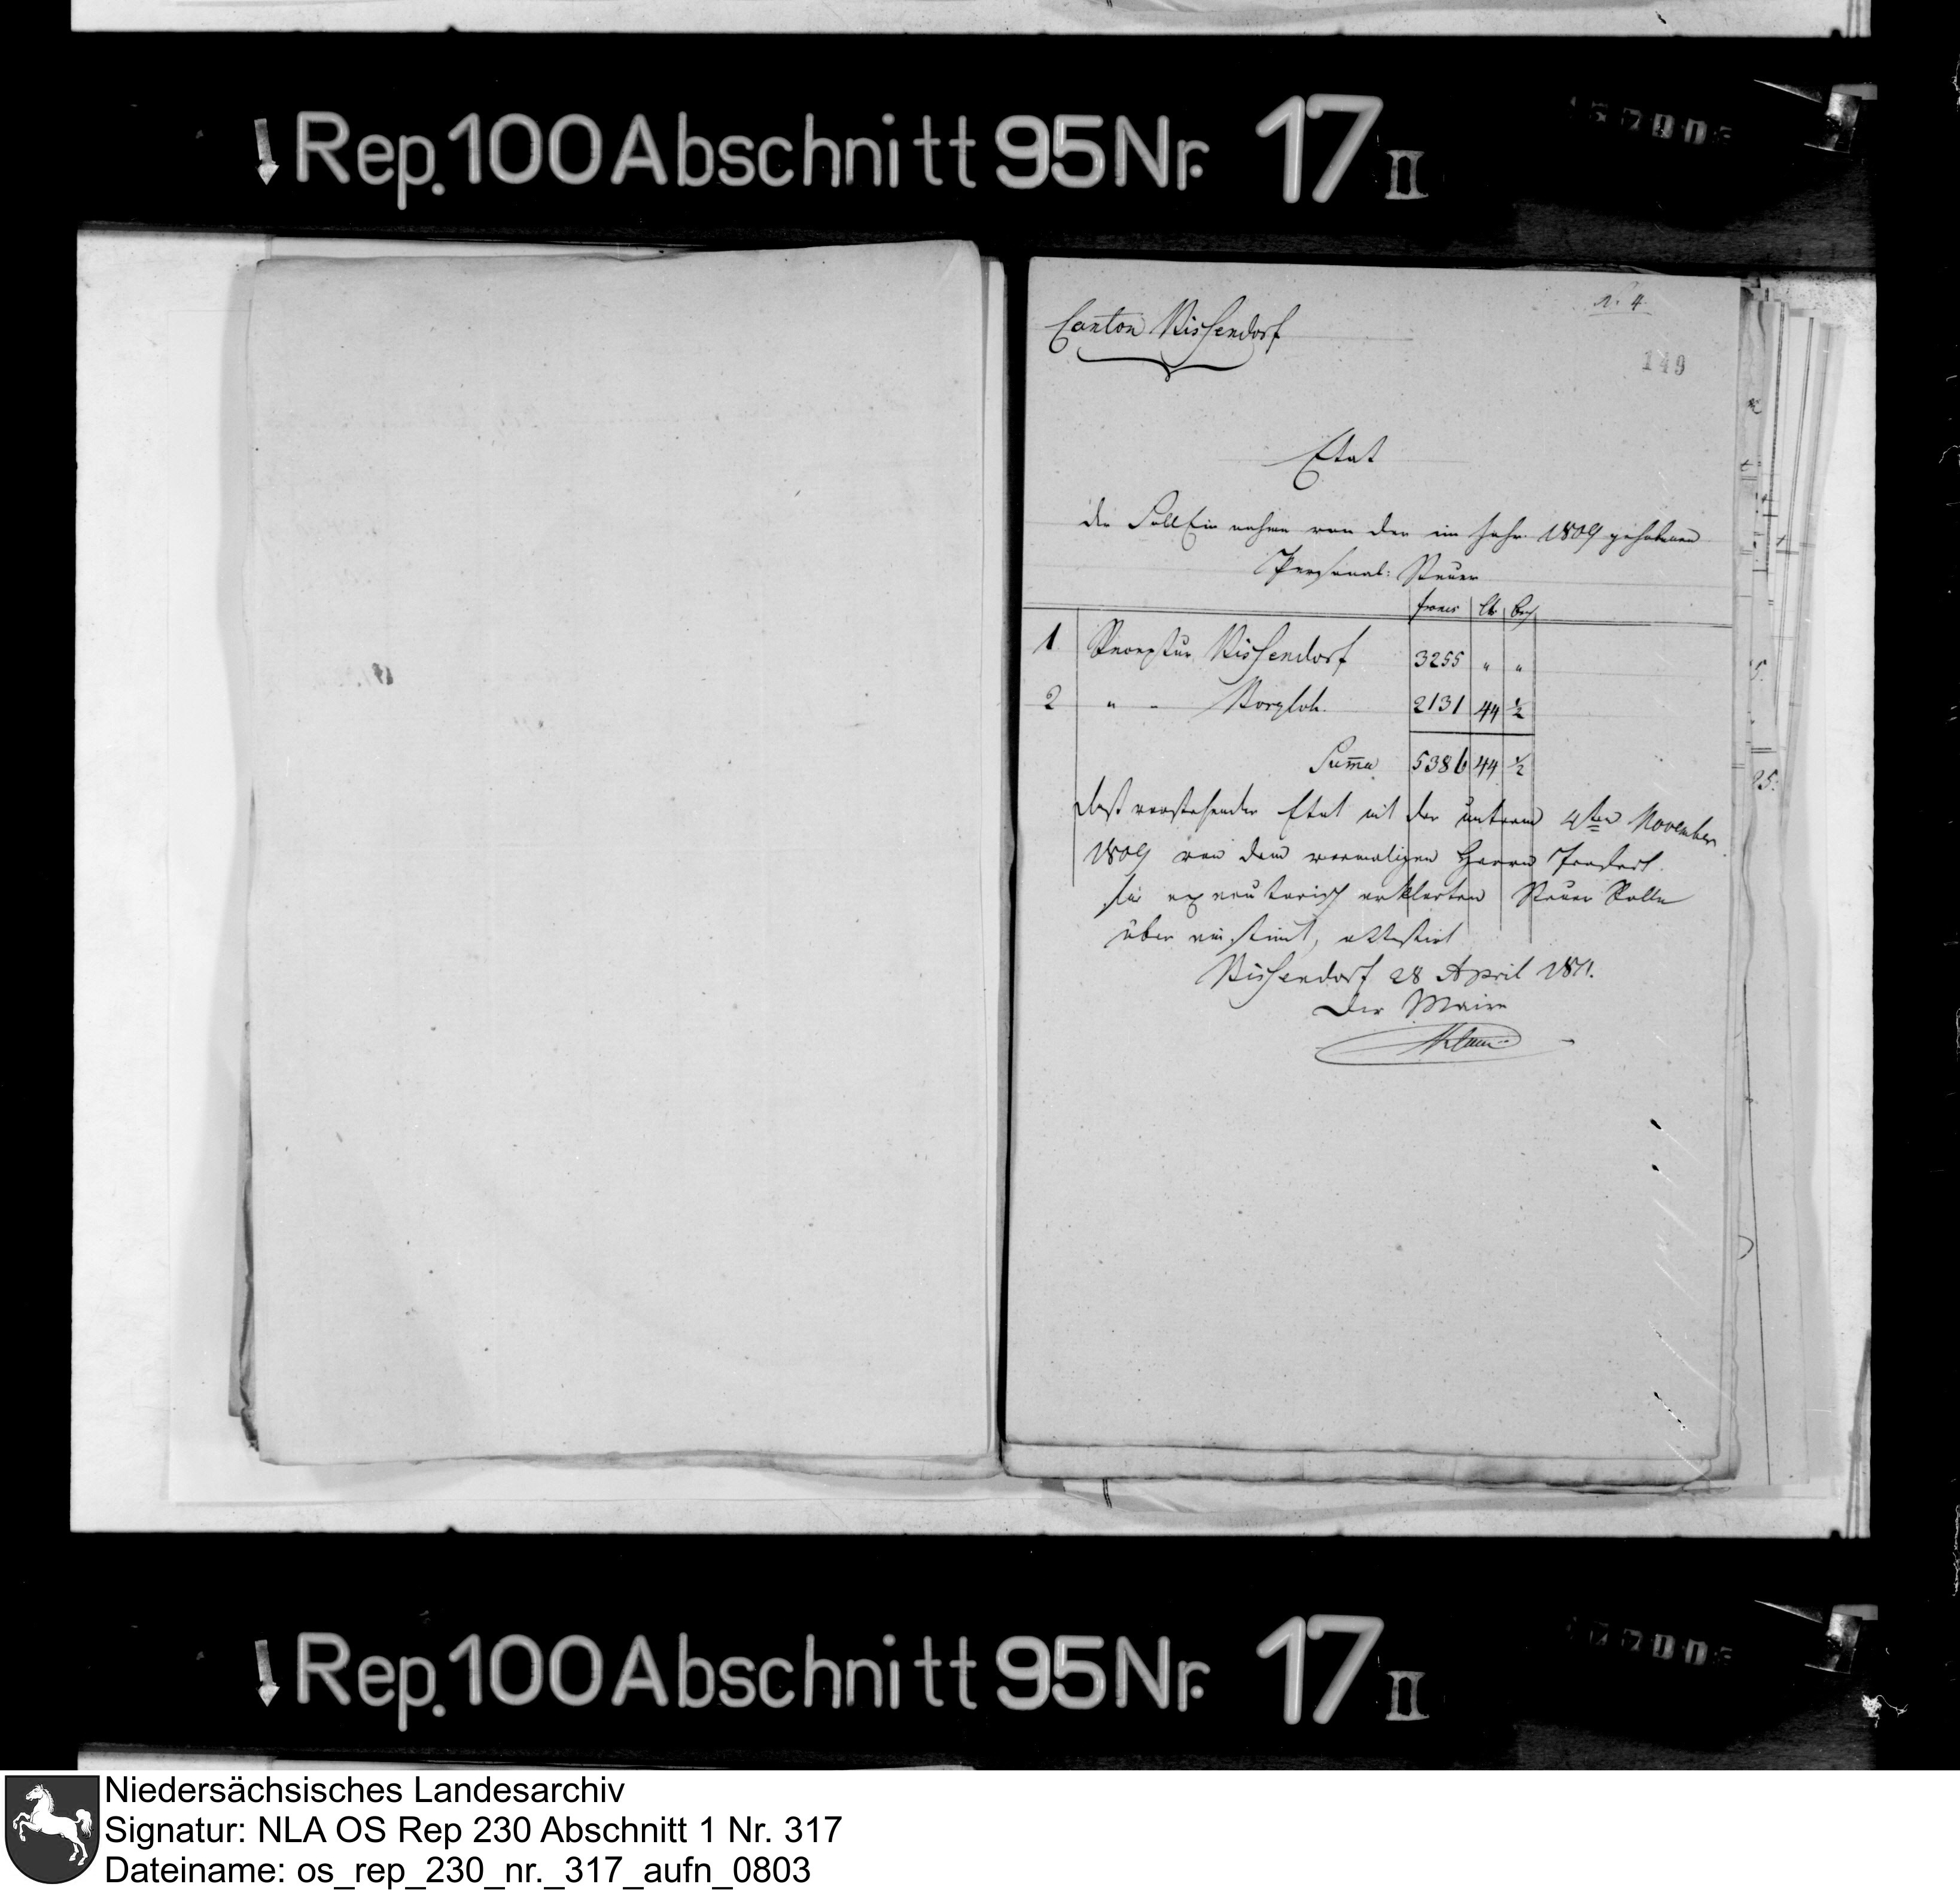 Rep. 100 Abschnitt 95 Nr. 17 II
N. 4
Canton Bissendorf
149
Etat
der Soll Einnahme von der im Jahr 1809 gehobenen
Personal: Steuer
francs Ct.
1 Receptur Bissendorf 3255 " "
2 " - Borgloh. 2131 44 ½
Summa 5386 44 ½
Dass vorstehender Etat mit der unterm 4ten November
1809 von dem vormaligen Herrn Praefect
für executorisch erklärten Steuer Rolle
über einstimt, attestirt
Bissendorf 28 April 1811.
Der Maire
Rep. 100 Abschnitt 95 Nr. 17 II
Niedersächsisches Landesarchiv
Signatur: NLA OS Rep 230 Abschnitt 1 Nr. 317
Dateiname: os_rep_230_nr._317_aufn_0803